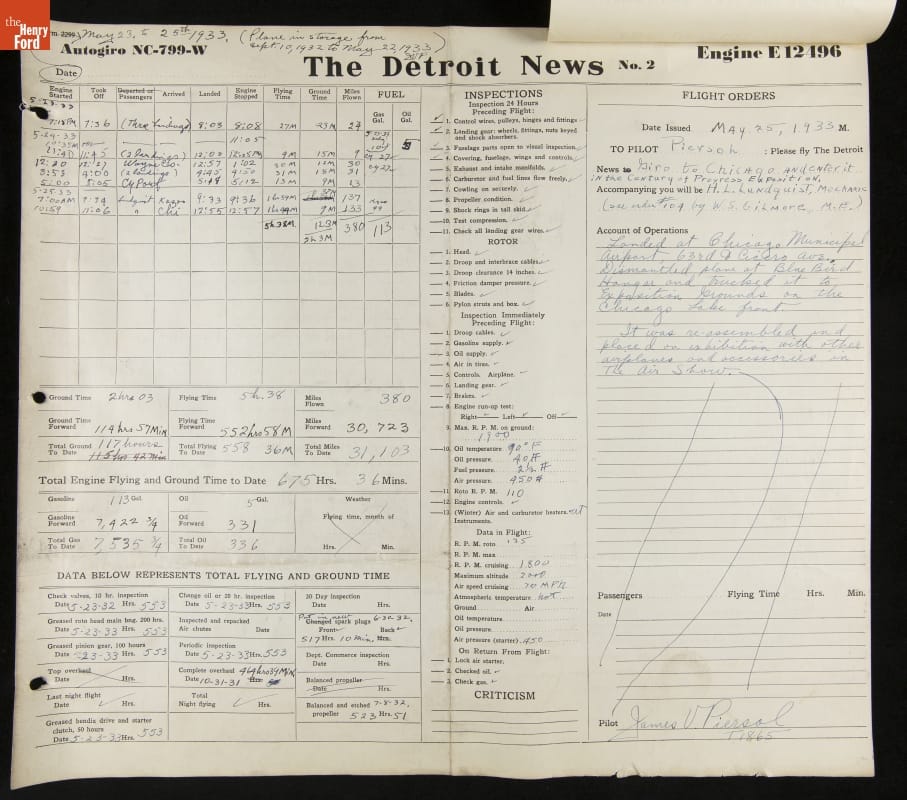 the
Henry
Ford
May 23, to 25th 1933, (Plane in storage from
Sept. 10, 1932 to May 22, 1933)
Autogiro NC-799-W
The Detroit News No. 2
Engine E12496
Date
Engine Started Took Off Departed or Passengers Arrived Landed Engine Stopped Flying Time Ground Time Miles Flown FUEL
Gas Gal. Oil Gal.
5-23-33
7:18PM 7:36 (Three Landings) 8:03 8:08 27M 23M 27
5-24-33
10:35AM 11:05
11:41 11:45 (2 landings) 12:00 15M
12:57 1:02 30
3:53 4:00 (2 landings) 4:45 4:50 31M 31
5:00 5:05 5:12 13M 9M 13
5-25-33
7:00AM 9:33 9:36 137
10:59 11:06 " Chi 12:55 12:57 9M 133
5h 38M 380 113
2h 3M
Ground Time 2hrs 03 Flying Time 5h.38 Miles Flown 380
Ground Time Forward 114hrs 57Min Flying Time Forward 552hrs 58M Miles Forward 30,723
Total Ground To Date 117 hours Total Flying To Date 558 36M Total Miles To Date 31,103
Total Engine Flying and Ground Time to Date 675 Hrs. 36 Mins.
Gasoline 113 Gal. Oil 5 Gal. Weather
Gasoline Forward 7,422 3/4 Oil Forward 331 Flying time, month of
Total Gas To Date 7,535 3/4 Total Oil To Date 336 Hrs. Min.
DATA BELOW REPRESENTS TOTAL FLYING AND GROUND TIME
Check valves, 10 hr. inspection
Date 5-23-32 Hrs. 553
Change oil or 20 hr. inspection
Date 5-23-33 Hrs. 553
10 Day inspection
Date Hrs.
Greased rotor head main bng. 200 hrs.
Date 5-23-33 Hrs. 553
Inspected and repacked
Air chutes Date
Put in new 6-30-32,
Changed spark plugs
Front Back
517 Hrs. 10 Min. Hrs.
Greased pinion gear, 100 hours
Date 5-23-33 Hrs. 553
Periodic inspection
Date 5-23-33 Hrs. 553
Dept. Commerce inspection
Date Hrs.
Top overhaul
Date Hrs.
Complete overhaul 464hrs 39Min
Date 10-31-31 Hrs.
Balanced propeller
Date Hrs.
Last night flight
Date Hrs.
Total
Night flying Hrs.
Balanced and etched 7-8-32,
propeller 523 Hrs. 51
Greased bendix drive and starter
clutch, 50 hours
Date 5-23-33 Hrs. 553
INSPECTIONS
Inspection 24 Hours
Preceding Flight:
1. Control wires, pulleys, hinges and fittings
2. Landing gear: wheels, fittings, nuts keyed
and shock absorbers.
3. Fuselage parts open to visual inspection.
4. Covering, fuselage, wings and controls.
5. Exhaust and intake manifolds.
6. Carburetor and fuel lines flow freely.
7. Cowling on securely.
8. Propeller condition.
9. Shock rings in tail skid.
10. Test compression.
11. Check all landing gear wires.
ROTOR
1. Head.
2. Droop and interbrace cables.
3. Droop clearance 14 inches.
4. Friction damper pressure.
5. Blades.
6. Pylon struts and box.
Inspection Immediately
Preceding Flight:
1. Droop cables.
2. Gasoline supply.
3. Oil supply.
4. Air in tires.
5. Controls. Airplane.
6. Landing gear.
7. Brakes.
8. Engine run-up test:
Right Left Off
9. Max. R. P. M. on ground:
1,900
10. Oil temperature 90° F
Oil pressure 40#
Fuel pressure 2½#
Air pressure 450#
11. Roto R. P. M. 110
12. Engine controls.
13. (Winter) Air and carburetor heaters. out
Instruments.
Data in Flight:
R. P. M. roto 135
R. P. M. max
R. P. M. cruising 1,800
Maximum altitude 2000
Air speed cruising 70 MPH
Atmospheric temperature hot
Ground Air
Oil temperature
Oil pressure
Air pressure (starter) 450
On Return From Flight:
1. Lock air starter.
2. Checked oil.
3. Check gas.
CRITICISM
FLIGHT ORDERS
Date Issued May 25, 1933 M.
TO PILOT Piersol : Please fly The Detroit
News Giro to Chicago and enter it
in the Century of Progress Exposition.
Accompanying you will be H. L. Lundquist, Mechanic
(see order #109 by W.S. Gilmore, M.E.)
Account of Operations
Landed at Chicago Municipal
Airport 63rd & Cicero ave.
Dismantled plane at Blue Bird
Hangar and trucked it to
Exposition Grounds on the
Chicago Lake front.
It was re-assembled and
placed on exhibition with other
airplanes and accessories in
The Air Show.
Passengers Flying Time Hrs. Min.
Date
Pilot James V. Piersol
T1865